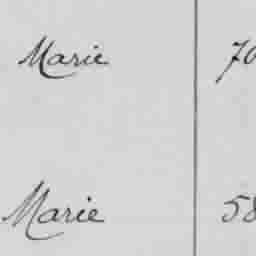 Marie 70
Marie 58